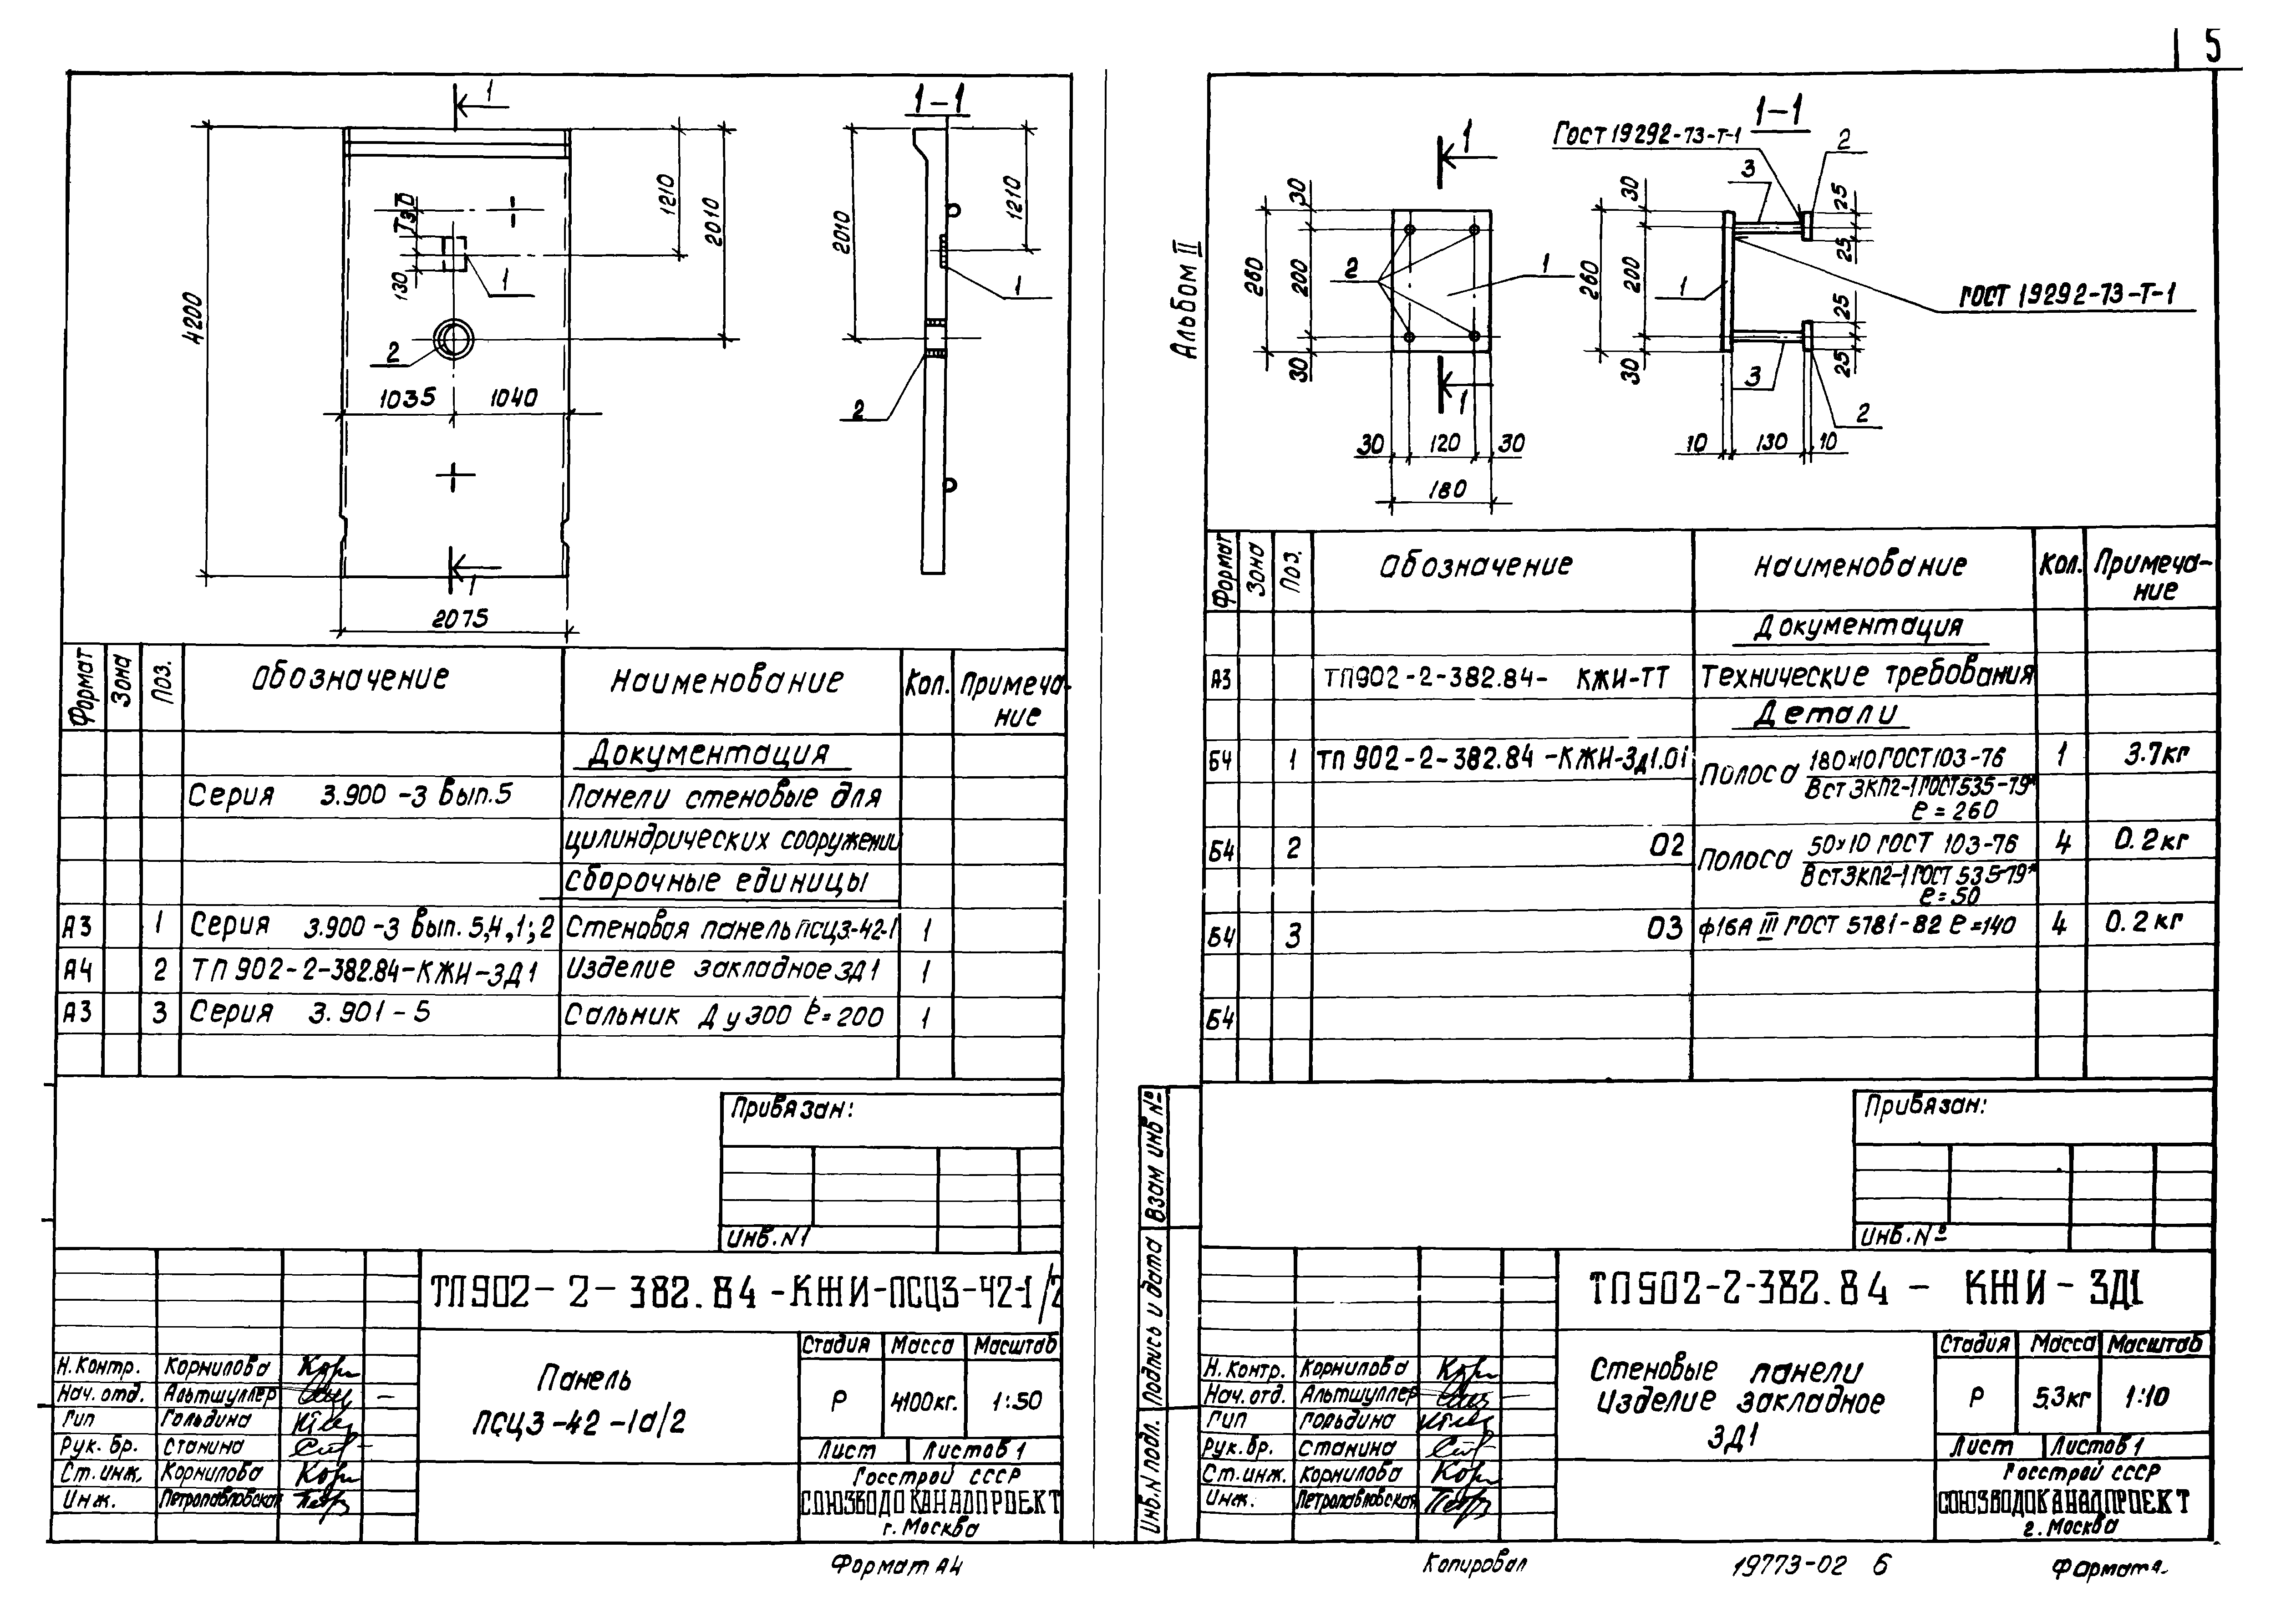 5
1
1-1
730
130
1210
2010
2010
1210
4200
1
1
2
2
1035
1040
1
2075
Формат
Зона
Поз.
Обозначение
Наименование
Кол.
Примеча-
ние
Документация
Серия 3.900-3 Вып.5
Панели стеновые для
цилиндрических сооружений
Сборочные единицы
А3 1 Серия 3.900-3 Вып. 5,4,1;2 Стеновая панель ПСЦ3-42-1 1
А4 2 ТП 902-2-382.84-КЖИ-ЗД1 Изделие закладное ЗД1 1
А3 3 Серия 3.901-5 Сальник Ду300 ℓ=200 1
Привязан:
Инв.N1
ТП902-2-382.84-КЖИ-ПСЦ3-42-1/2
Панель
ПСЦ3-42-1а/2
Стадия Масса Масштаб
Р 4100кг. 1:50
Лист Листов 1
Госстрой СССР
СОЮЗВОДОКАНАЛПРОЕКТ
г. Москва
Н.Контр. Корнилова
Нач.отд. Альтшуллер
Гип Гольдина
Рук. бр. Станина
Ст.инж. Корнилова
Инж. Петропавловская
Формат А4
Альбом II
1
1-1
ГОСТ 19292-73-Т-1
2
3
30
260
200
30
2
1
1
30 120 30
180
30
260
200
30
25
25
25
25
1
ГОСТ 19292-73-Т-1
3
2
10 130 10
Формат
Зона
Поз.
Обозначение
Наименование
Кол.
Примеча-
ние
Документация
А3 ТП902-2-382.84- КЖИ-ТТ Технические требования
Детали
Б4 1 ТП 902-2-382.84-КЖИ-Зд1.01 Полоса 180×10 ГОСТ 103-76 1 3.7кг
Вст3КП2-1 ГОСТ 535-79*
ℓ=260
Б4 2 02 Полоса 50×10 ГОСТ 103-76 4 0.2кг
Вст3КП2-1 ГОСТ 535-79*
ℓ=50
Б4 3 03 ф16А III ГОСТ 5781-82 ℓ=140 4 0.2кг
Б4
Привязан:
Инв.№
Взам инв №
Подпись и дата
Инв.N подл.
ТП902-2-382.84- КЖИ-ЗД1
Стеновые панели
Изделие закладное
ЗД1
Стадия Масса Масштаб
Р 5,3кг 1:10
Лист Листов 1
Госстрой СССР
СОЮЗВОДОКАНАЛПРОЕКТ
г. Москва
Н.контр. Корнилова
Нач.отд. Альтшуллер
Гип Гольдина
Рук.бр. Станина
Ст.инж. Корнилова
Инж. Петропавловская
Копировал
19773-02 6
Формат